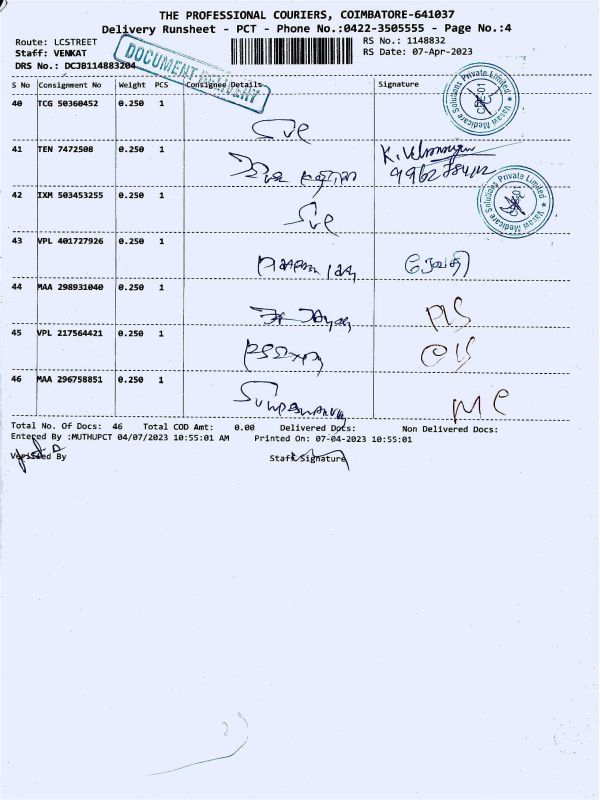 THE PROFESSIONAL COURIERS, COIMBATORE-641037
Delivery Runsheet - PCT - Phone No.:0422-3505555 - Page No.:4
Route: LCSTREET
Staff: VENKAT
DRS No.: DCJB1148832Θ4
RS No.: 1148832
RS Date: 07-Apr-2023
DOCUMENT DELIVERY
S No Consignment No Weight PCS Consignee Details Signature
40 TCG 50360452 0.250 1
Vasaw Medicare Solutions Private Limited
41 TEN 7472508 0.250 1
42 IXM 503453255 0.250 1
Vasaw Medicare Solutions Private Limited
43 VPL 401727926 0.250 1
ரேவதி
44 MAA 298931040 0.250 1
45 VPL 217564421 0.250 1
46 MAA 296758851 0.250 1
Total No. Of Docs: 46 Total COD Amt: 0.00 Delivered Docs: Non Delivered Docs:
Entered By :MUTHUPCT 04/07/2023 10:55:01 AM Printed On: 07-04-2023 10:55:01
Verified By Staff Signature